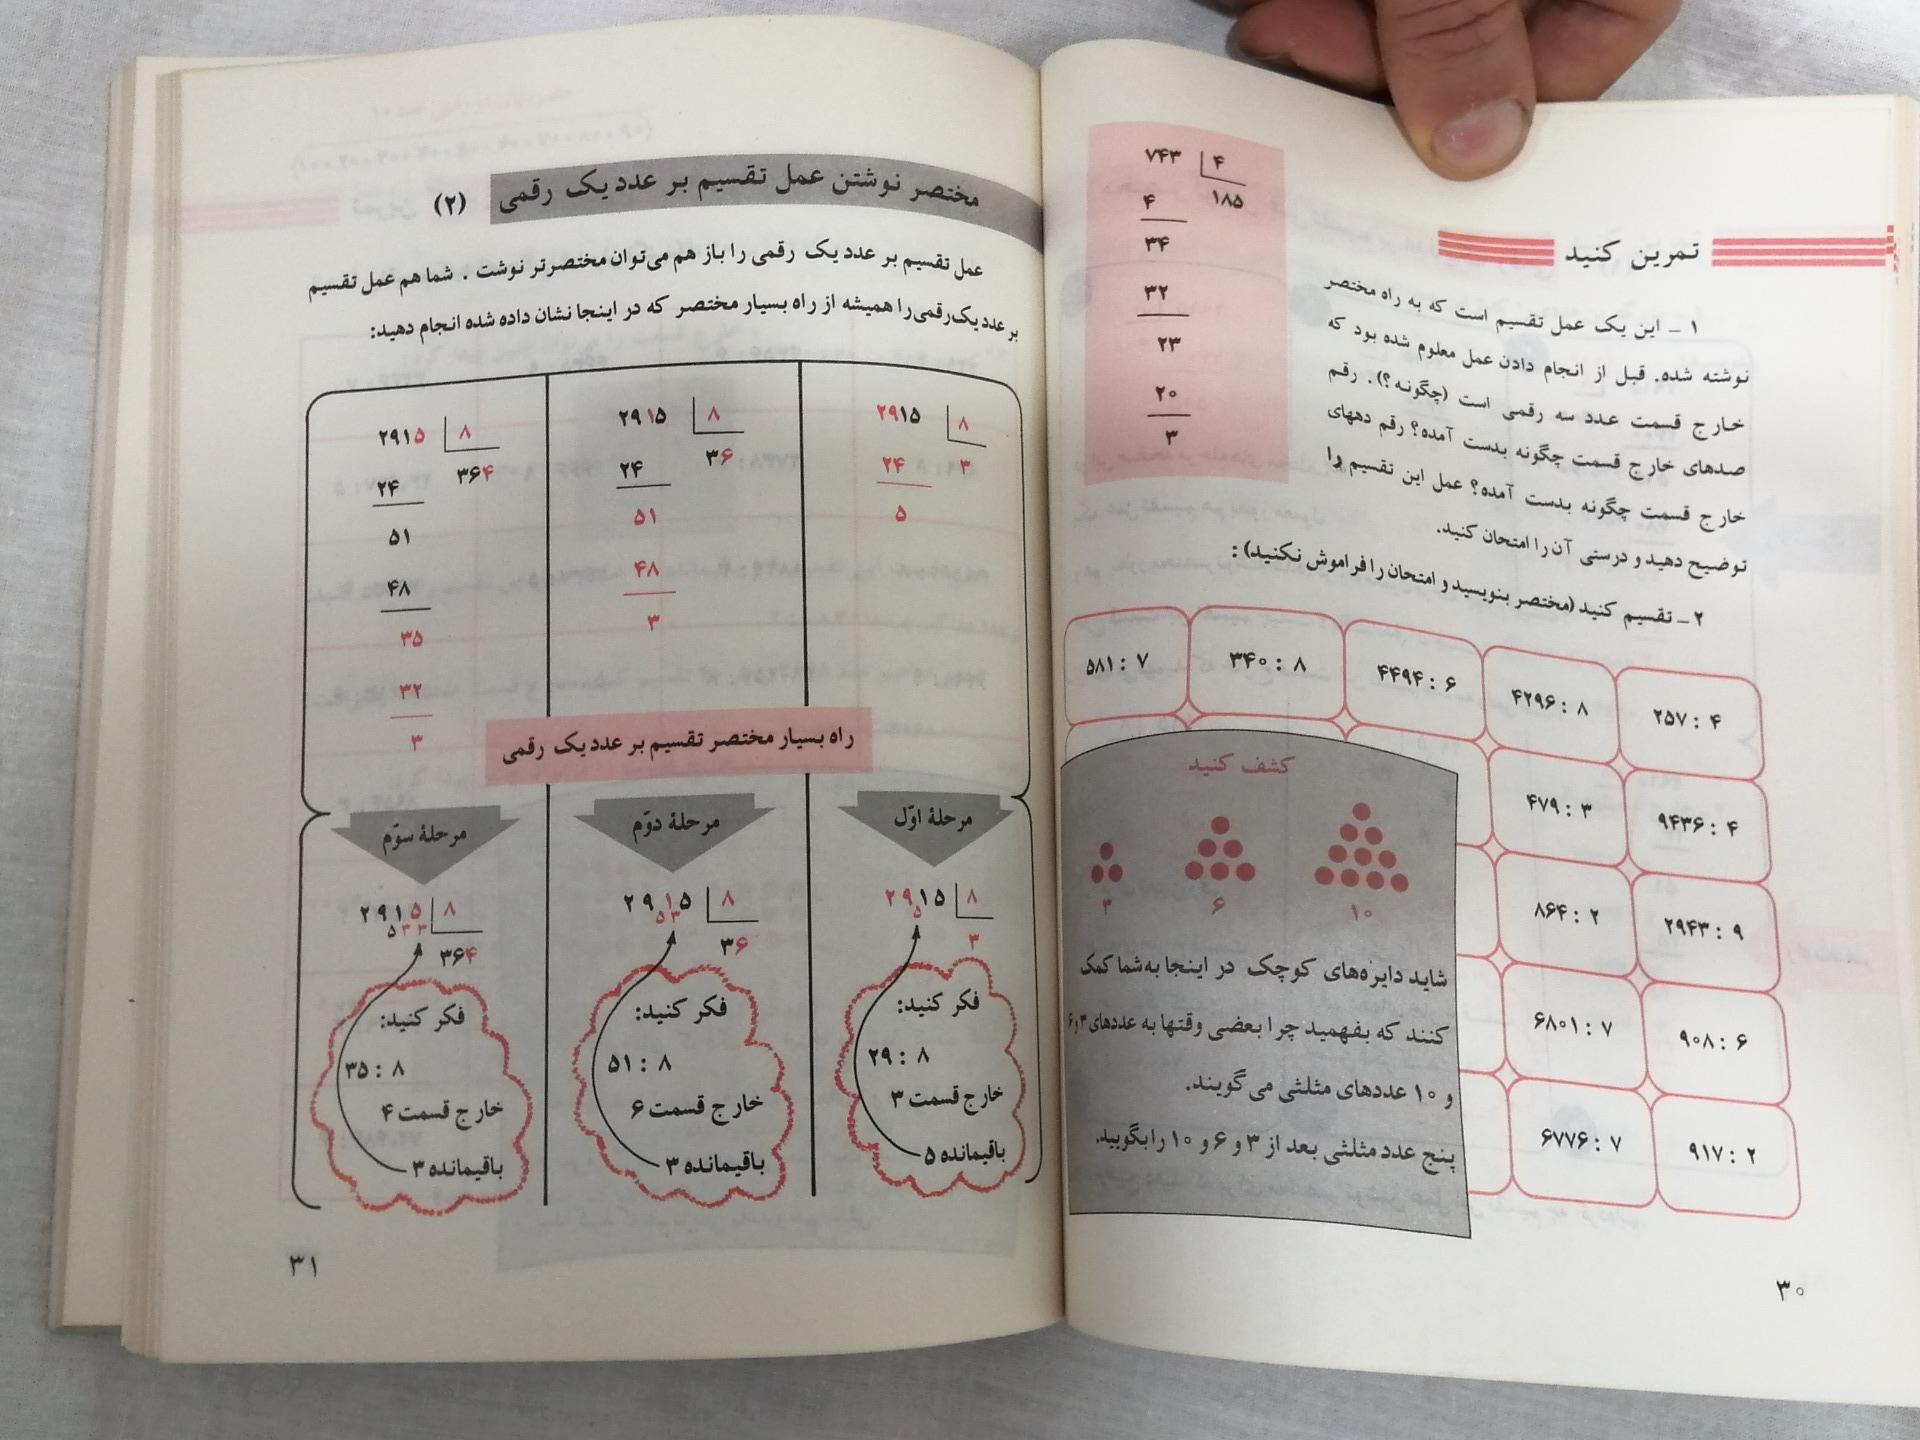 تمرین کنید
۱ - این یک عمل تقسیم است که به راه مختصر
نوشته شده. قبل از انجام دادن عمل معلوم شده بود که
خارج قسمت عدد سه رقمی است (چگونه؟). رقم
صدهای خارج قسمت چگونه بدست آمده؟ رقم دههای
خارج قسمت چگونه بدست آمده؟ عمل این تقسیم را
توضیح دهید و درستی آن را امتحان کنید.
۷۴۳ ۴
۱۸۵
۴
۳۴
۳۲
۲۳
۲۰
۳
۲ - تقسیم کنید (مختصر بنویسید و امتحان را فراموش نکنید):
۲۵۷ : ۴
۴۲۹۶ : ۸
۴۴۹۴ : ۶
۳۴۰ : ۸
۵۸۱ : ۷
۹۴۳۶ : ۴
۴۷۹ : ۳
۲۹۴۳ : ۹
۸۶۴ : ۲
۹۰۸ : ۶
۶۸۰۱ : ۷
۹۱۷ : ۲
۶۷۷۶ : ۷
کشف کنید
۱۰
۶
۳
شاید دایره‌های کوچک در اینجا به شما کمک
کنند که بفهمید چرا بعضی وقتها به عددهای ۳ و ۶
و ۱۰ عددهای مثلثی می گویند.
پنج عدد مثلثی بعد از ۳ و ۶ و ۱۰ را بگویید.
۳۰
مختصر نوشتن عمل تقسیم بر عدد یک رقمی (۲)
عمل تقسیم بر عدد یک رقمی را باز هم می‌توان مختصرتر نوشت . شما هم عمل تقسیم
بر عدد یک‌رقمی را همیشه از راه بسیار مختصر که در اینجا نشان داده شده انجام دهید:
۲۹۱۵ ۸
۳
۲۴
۵
۲۹۱۵ ۸
۳۶
۲۴
۵۱
۴۸
۳
۲۹۱۵ ۸
۳۶۴
۲۴
۵۱
۴۸
۳۵
۳۲
۳
راه بسیار مختصر تقسیم بر عدد یک رقمی
مرحلهٔ اوّل
۲۹۱۵ ۸
۵
۳
فکر کنید:
۲۹ : ۸
خارج قسمت ۳
باقیمانده ۵
مرحلهٔ دوّم
۲۹۱۵ ۸
۵۳
۳۶
فکر کنید:
۵۱ : ۸
خارج قسمت ۶
باقیمانده ۳
مرحلهٔ سوّم
۲۹۱۵ ۸
۵۳۳
۳۶۴
فکر کنید:
۳۵ : ۸
خارج قسمت ۴
باقیمانده ۳
۳۱